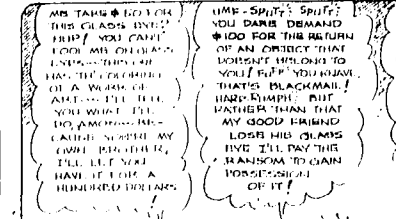 ME TAKE $50 FOR
THIS GLASS EYE?
HUH! YOU CAN'T
FOOL ME ON GLASS
EYES
HAS TH' COLORING
OF A WORK OF
ART I'LL TELL
YOU WHAT I'LL
DO, AMONG
CAUSE YOU'RE MY
OWN BROTHER,
I'LL LET YOU
HAVE IT FOR A
HUNDRED DOLLARS
UMF-SPUTT-SPUTT-
YOU DARE DEMAND
$100 FOR THE RETURN
OF AN OBJECT THAT
DOESN'T BELONG TO
YOU! YOU KNAVE,
THAT'S BLACKMAIL!
BUT
RATHER THAN THAT
MY GOOD FRIEND
LOSE HIS GLASS
EYE I'LL PAY THE
RANSOM TO GAIN
POSSESSION
OF IT!